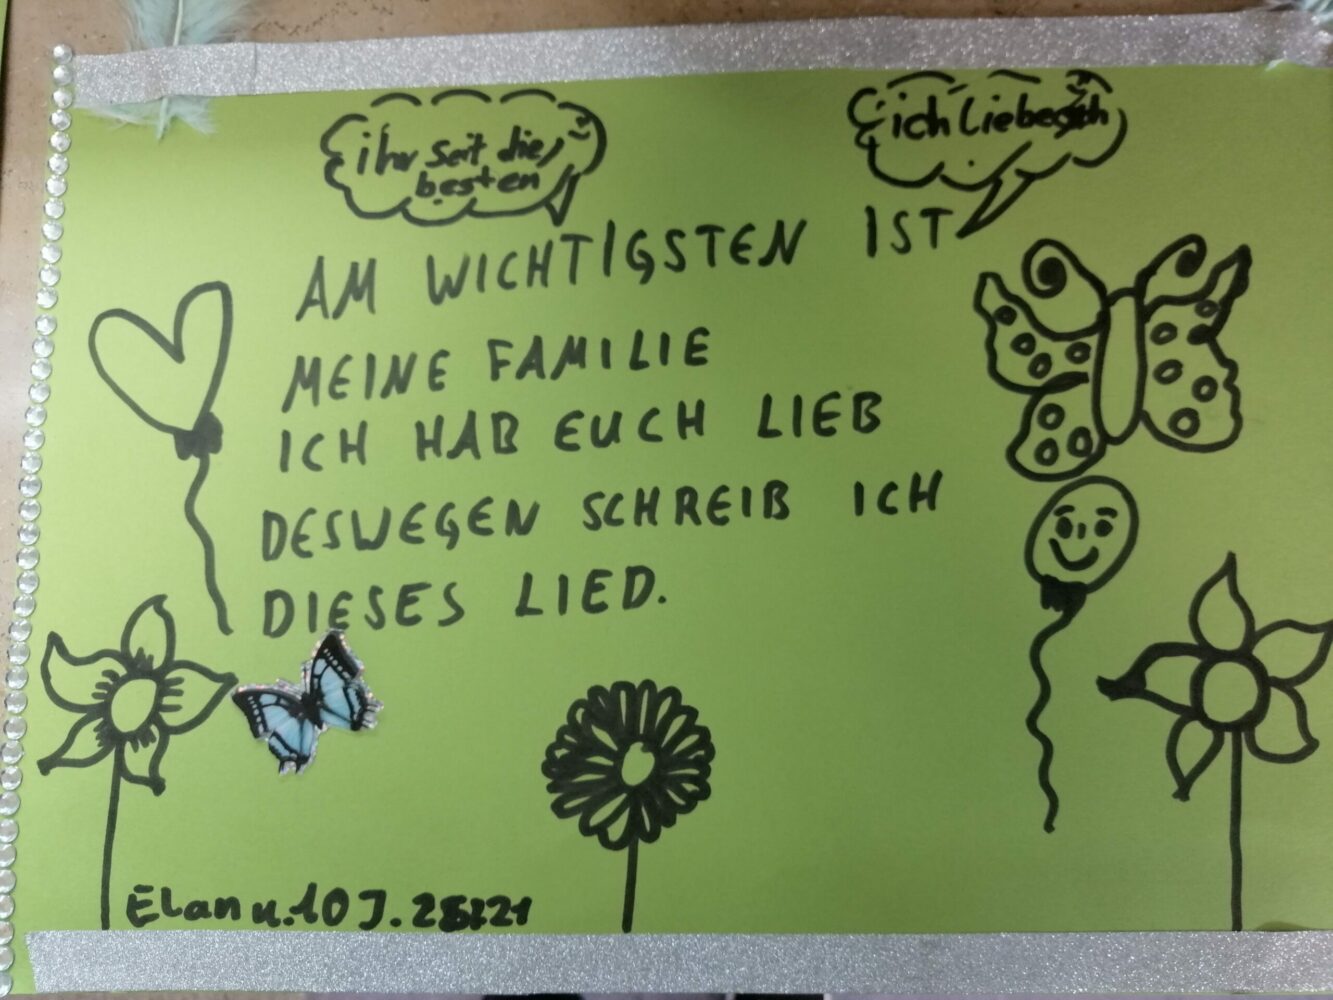 ihr seit die
besten
ich Liebe
AM WICHTIGSTEN IST
MEINE FAMILIE
ICH HAB EUCH LIEB
DESWEGEN SCHREIB ICH
DIESES LIED.
Elan u. 10 J.